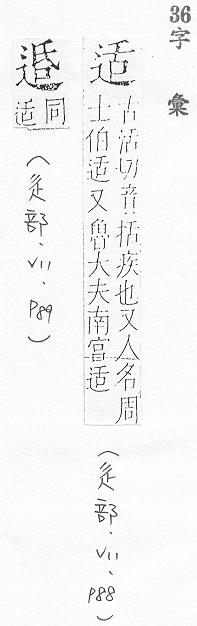 36
字彙
适
古活切音括疾也又人名周
士伯适又魯大夫南宮适
(辵部、VII、P88)
𨓈
同
适
(辵部、VII、P89)